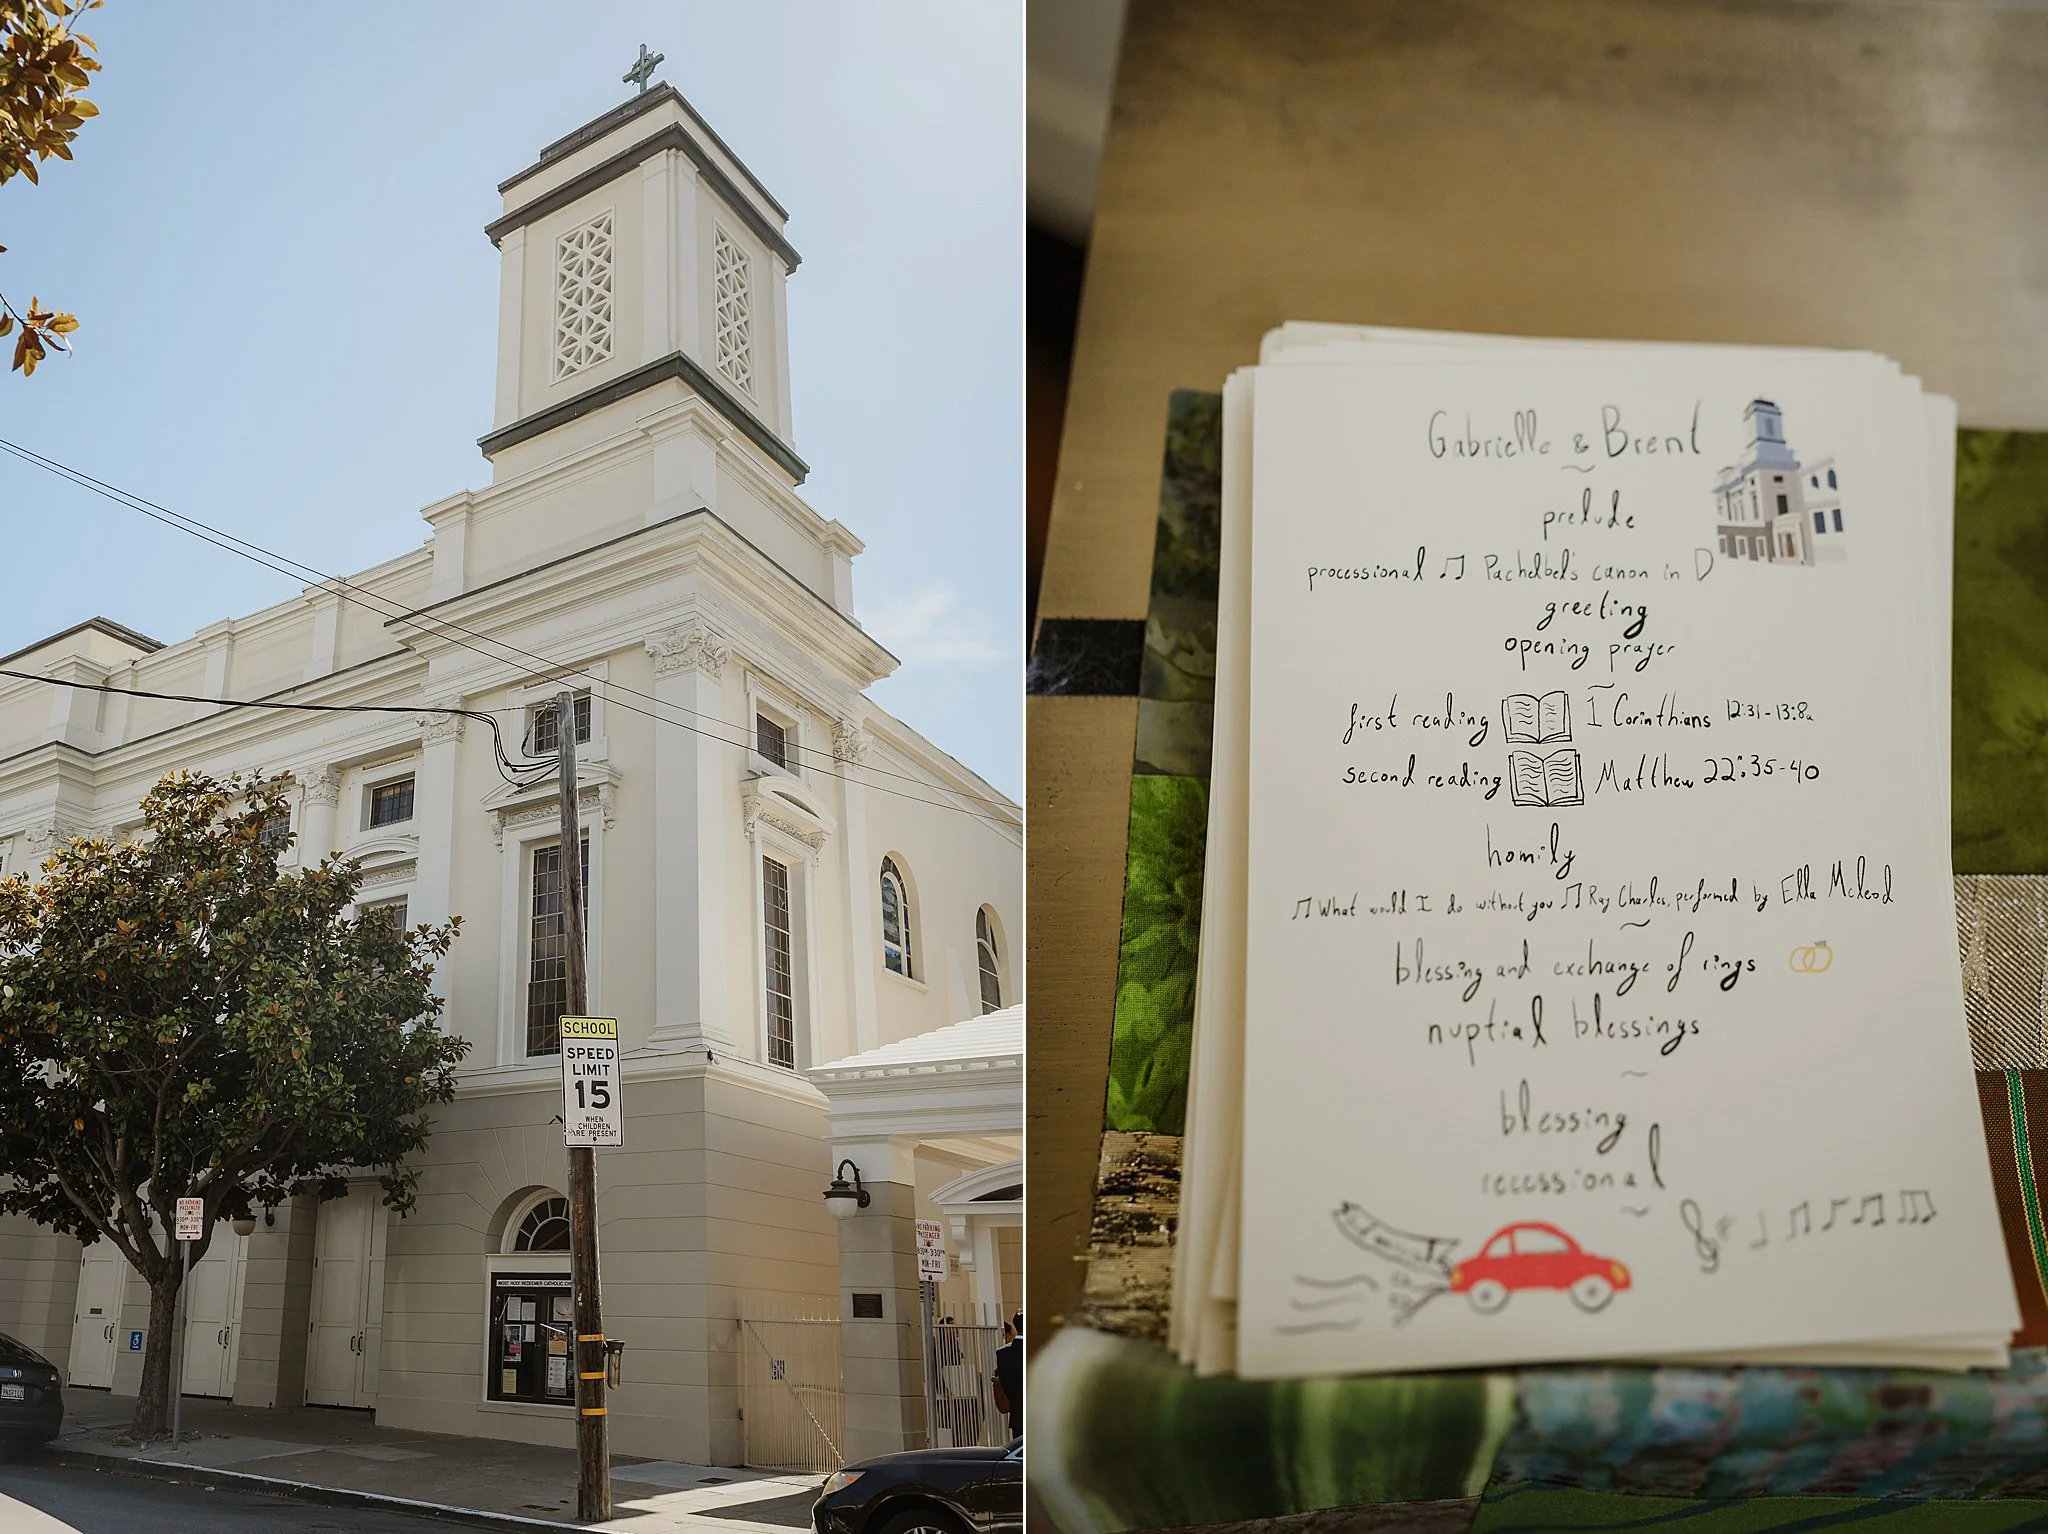 SCHOOL
SPEED
LIMIT
15
WHEN
CHILDREN
ARE PRESENT
NO PARKING
PASSENGER
ZONE
MON-FRI
MOST HOLY REDEEMER CATHOLIC
NO PARKING
PASSENGER
ZONE
MON-FRI
Gabrielle & Brent
~
prelude
processional ♫ Pachelbel's canon in D
greeting
opening prayer
~
first reading I Corinthians 12:31-13:8a
second reading Matthew 22:35-40
homily
♫ What would I do without you ♫ Ray Charles, performed by Ella Mcleod
~
blessing and exchange of rings
nuptial blessings
~
blessing
recessional
~